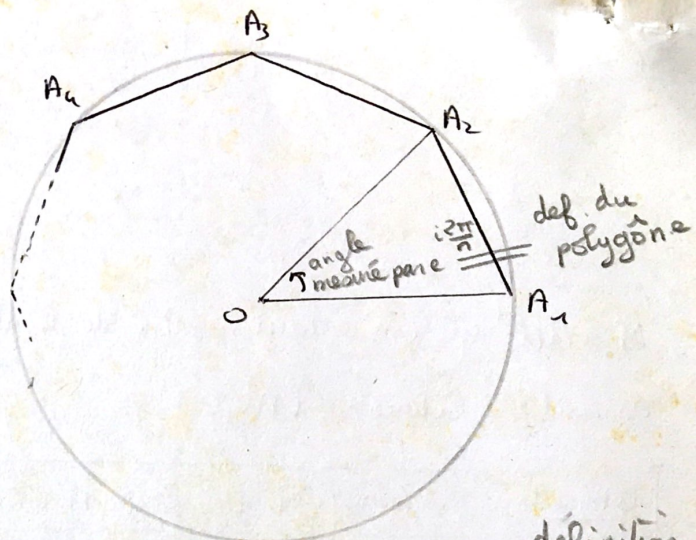 A₃
A₄
A₂
def. du
polygône
angle
mesuré par e^{i2π/n}
O
A₁
définition